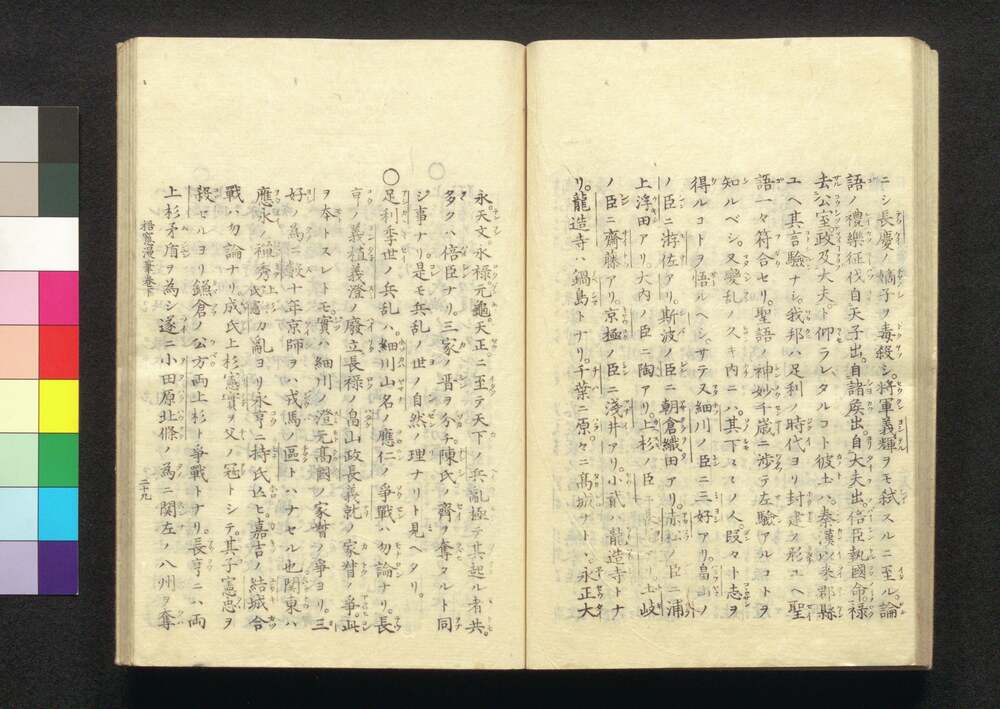 ニシ長慶ノ嫡子ヲ毒殺シ。將軍義輝ヲモ弑スルニ至ル論
語ノ禮樂征伐自天子出。自諸侯出。自大夫出。倍臣執國命。禄
去公室政及大夫。ト仰ラレタルコト彼土ハ秦漢以来郡縣
ユヘ其言驗ナシ。我邦ハ足利ノ時代ヨリ封建ノ形ユヘ聖
語一々符合セリ。聖語ノ神妙千歳ニ渉テ左驗アルコトヲ
知ルベシ。又變乱ノスキ内ニハ其下々ノ人。段々ト志ヲ
得ルコトヲ悟ルヘシ。サテス細川ノ臣ニ三好アリ。畠山ノ
ノ臣ニ游佐アリ。斯波ノ臣ニ朝倉織田アリ。赤松ノ臣ニ浦
上浮田アリ。大内ノ臣ニ陶アリ。上杉ノ臣ニ長尾アリ土岐
ノ臣ニ齋藤アリ。京極ノ臣ニ淺井アリ。小貳ハ龍造寺トナ
リ。龍造寺ハ鍋島トナリ。千葉ニ原々ニ髙城ナト。永正大
永天文永禄元龜天正ニ至テ天下ノ兵亂極テ其起ル者共。
多クハ倍臣ナリ。三家ノ晋ヲ分チ陳氏ノ齊ヲ奪タルト同
ジ事ナリ。是モ兵乱ノ世ノ自然ノ理ナリト見ヘタリ。
○足利季世ノ兵乱ハ細川山名ノ應仁ノ爭戰ハ勿論ナリ。長
亨ノ義植義澄ノ廢立長禄ノ畠山政長義就ノ家督ノ爭。此
ヲ本トスレトモ。實ハ細川ノ澄元髙國ノ家督ノ事ヨリ。三
好ノ為ニ數十年京師ヲハ戎馬ノ區トハナセル也関東ハ
應永ノ禪秀上杉氏憲カ亂ヨリ永亨ニ持氏亾ヒ嘉吉ノ結城合
戰ハ勿論ナリ成氏上杉憲實ヲ父ノ冠トシテ。其子憲忠ヲ
殺セルヨリ鎌倉ノ公方両上杉ト爭戰トナリ。長亨ニハ両
上杉矛盾ヲ為シ遂ニ小田原北條ノ為ニ関左ノ八州ヲ奪
梧窻漫筆巻下
二十九